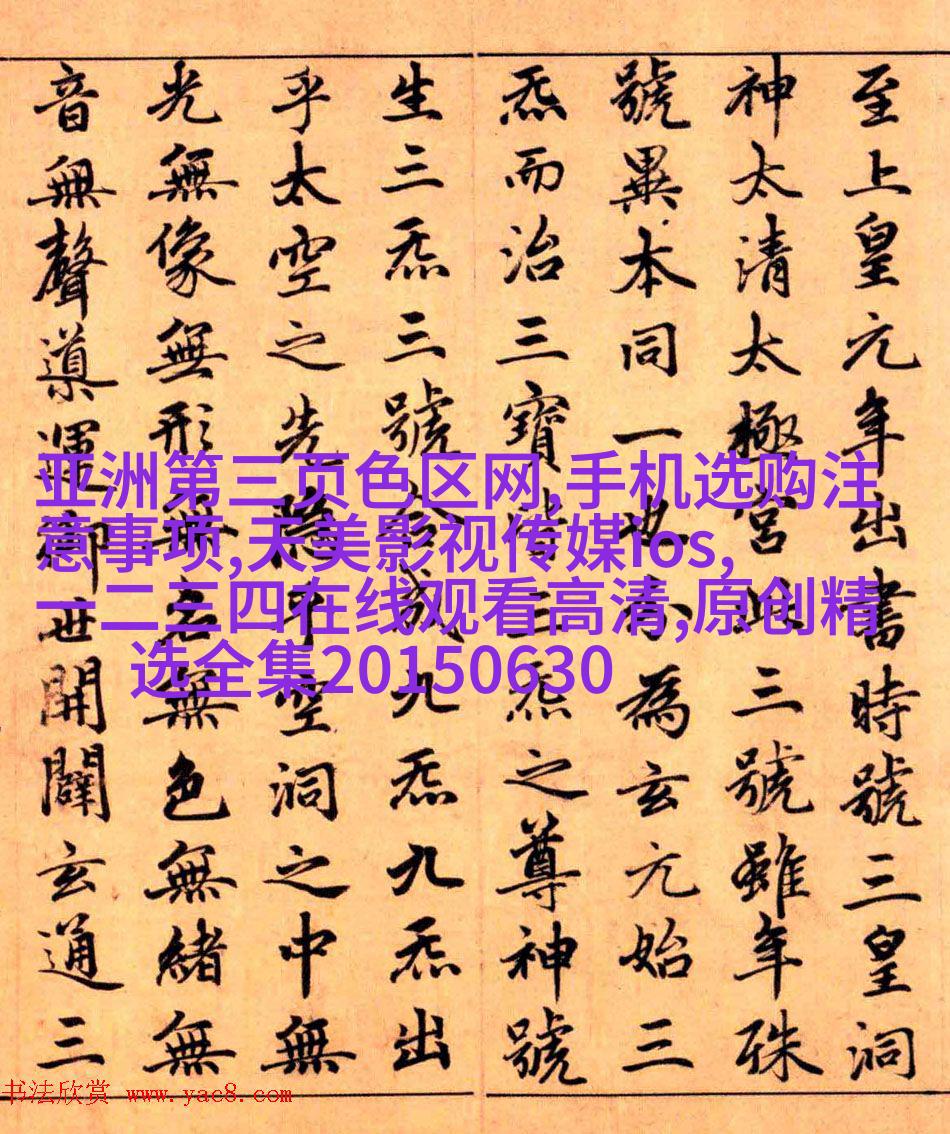 至上皇元年出書時號三皇洞
神太清太極宮此三號雖年殊
號異本同一也分為玄元始三
炁而治三寶皆三炁之尊神號
生三炁三號合成九炁九炁出
乎太空之先隱乎空洞之中無
光無像無形無名無色無緒無
音無聲導運御世開闢玄通三
亚洲第三页色区网,手机选购注
意事项,天美影视传媒ios,
一二三四在线观看高清,原创精
选全集20150630
书法欣赏 www.yac8.com